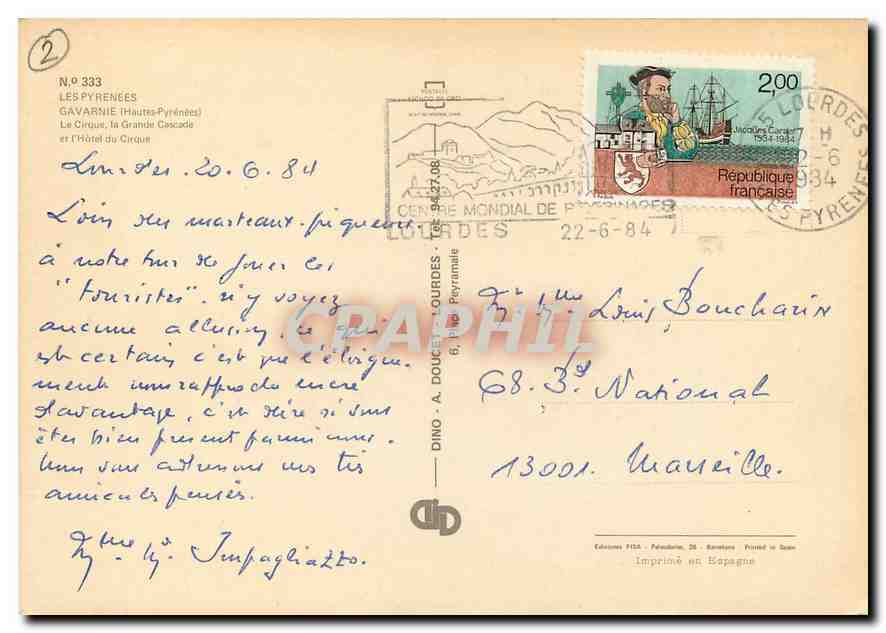 2
N.º 333
LES PYRENEES
GAVARNIE (Hautes-Pyrénées)
Le Cirque, la Grande Cascade
et l'Hôtel du Cirque
Lourdes. 20.6.84
Loin des marteaux-piqueurs.
à notre tour de jouer les
"touristes". n'y voyez
aucune allusion, ce qui
est certain c'est que l'éloigne-
ment nous rapproche encore
davantage, c'est dire si vous
êtes bien présent parmi nous.
Nous vous adressons nos très
amicales pensées.
Mme. M. Impagliazzo.
DINO - A. DOUCET - LOURDES - Tél. 94.27.08
6, Place Peyramale
CENTRE MONDIAL DE PELERINAGES
LOURDES 22-6-84
2,00
Jacques Cartier
1534-1984
République
française
LOURDES
17 H
22-6
1984
PYRENEES
M. Mme Louis Boucharin
68. Bd National
13001. Marseille.
Ediciones FISA - Palaudarias, 26 - Barcelona - Printed in Spain
Imprimé en Espagne
CPAPHIL